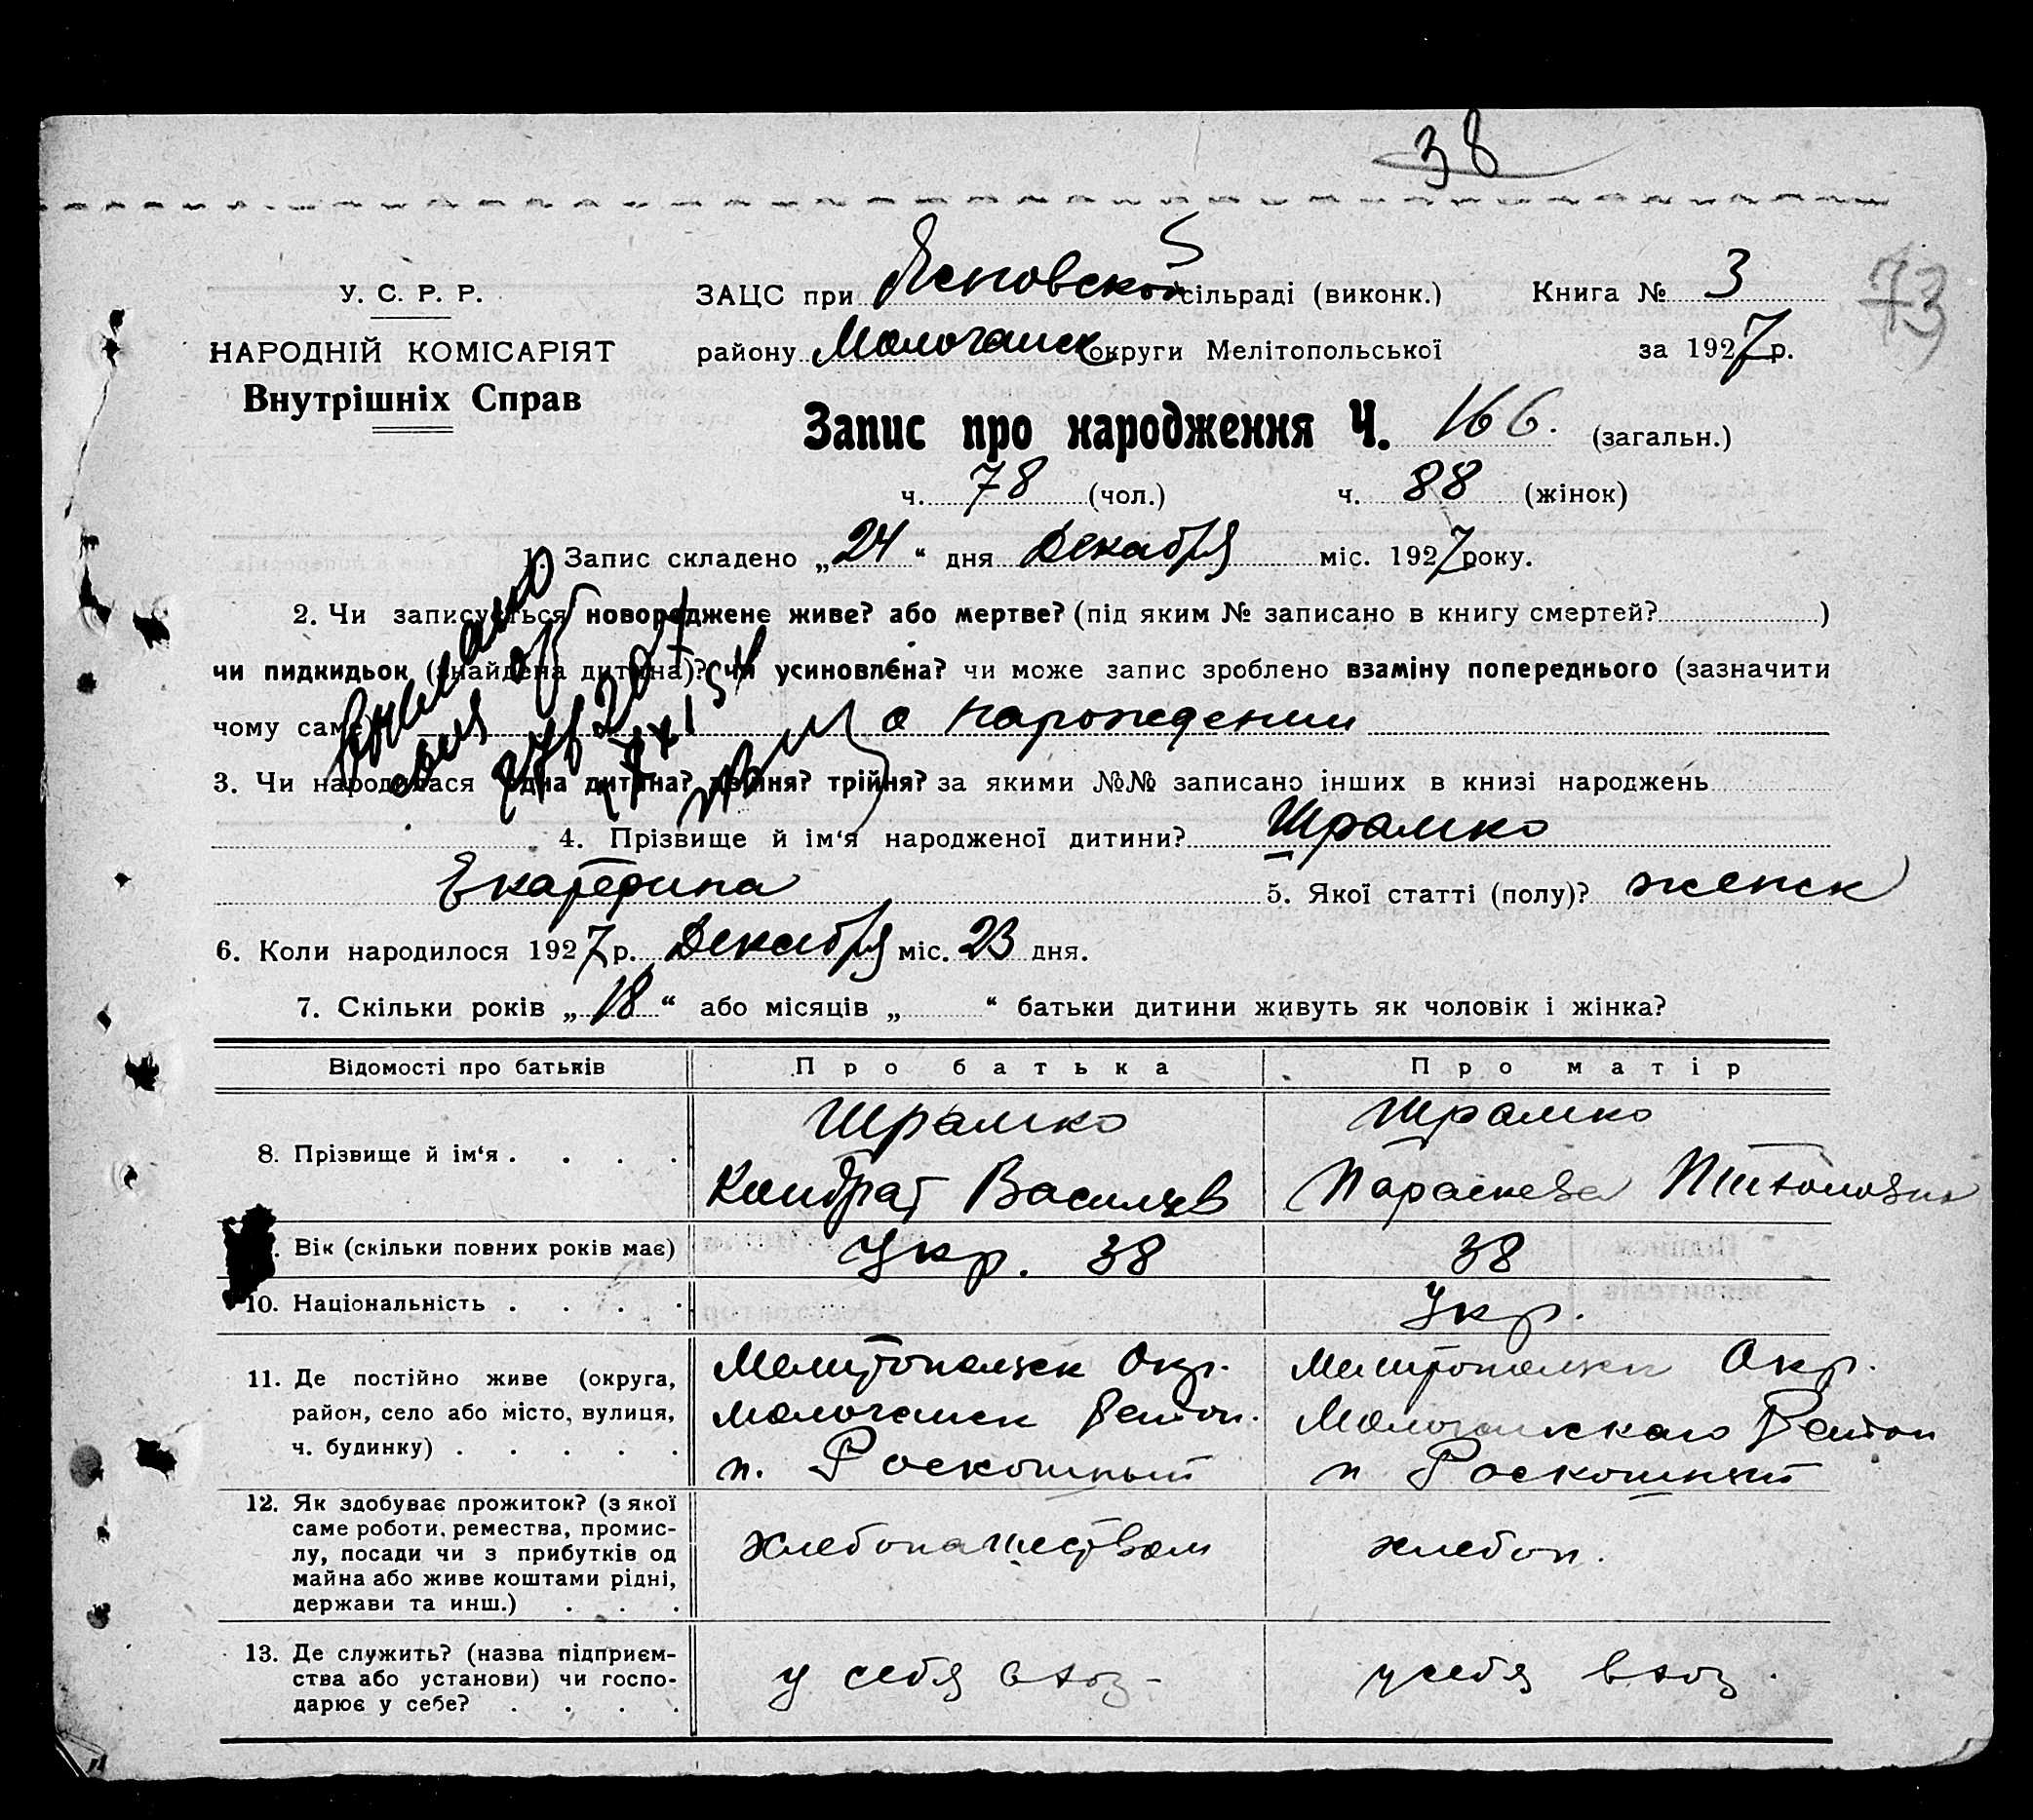 38
У. С. Р. Р.
НАРОДНІЙ КОМІСАРІЯТ
Внутрішніх Справ
ЗАЦС при сільраді (виконк.) Книга № 3
73
району Молочанск округи Мелітопольської за 1927 р.
Запис про народження Ч. 166. (загальн.)
ч. 78 (чол.) ч. 88 (жінок)
1. Запис складено „24“ дня Декабря міс. 1927 року.
2. Чи записується новороджене живе? або мертве? (під яким № записано в книгу смертей? )
чи пидкидьок (знайдена дитина)? чи усиновлена? чи може запис зроблено взаміну попереднього (зазначити
чому саме о нарождении
3. Чи народилася одна дитина? двійня? трійня? за якими №№ записано інших в книзі народжень
4. Прізвище й ім‘я народженої дитини? Шрамко
Екатерина 5. Якої статті (полу)? женск
6. Коли народилося 1927 р. Декабря міс. 23 дня.
7. Скільки років „18“ або місяців „ “ батьки дитини живуть як чоловік і жінка?
Відомості про батьків Про батька Про матір
8. Прізвище й ім‘я . . . . Шрамко Кондрат Васильев Шрамко Параскева
Вік (скільки повних років має) Укр. 38 38
10. Національність . . . . Укр.
11. Де постійно живе (округа,
район, село або місто, вулиця,
ч. будинку) . . . . .
Мелитопольск Окр.
Молочанск Район.
п. Роскошный
Мелитопольск Окр.
Молочанскаго Район
п Роскошный
12. Як здобуває прожиток? (з якої
саме роботи, ремества, промис-
лу, посади чи з прибутків од
майна або живе коштами рідні,
держави та инш.) . . .
хлебопашеством
хлебоп.
13. Де служить? (назва підприєм-
ства або установи) чи госпо-
дарює у себе? . . . .
у себя в хоз-
у себя в хоз.